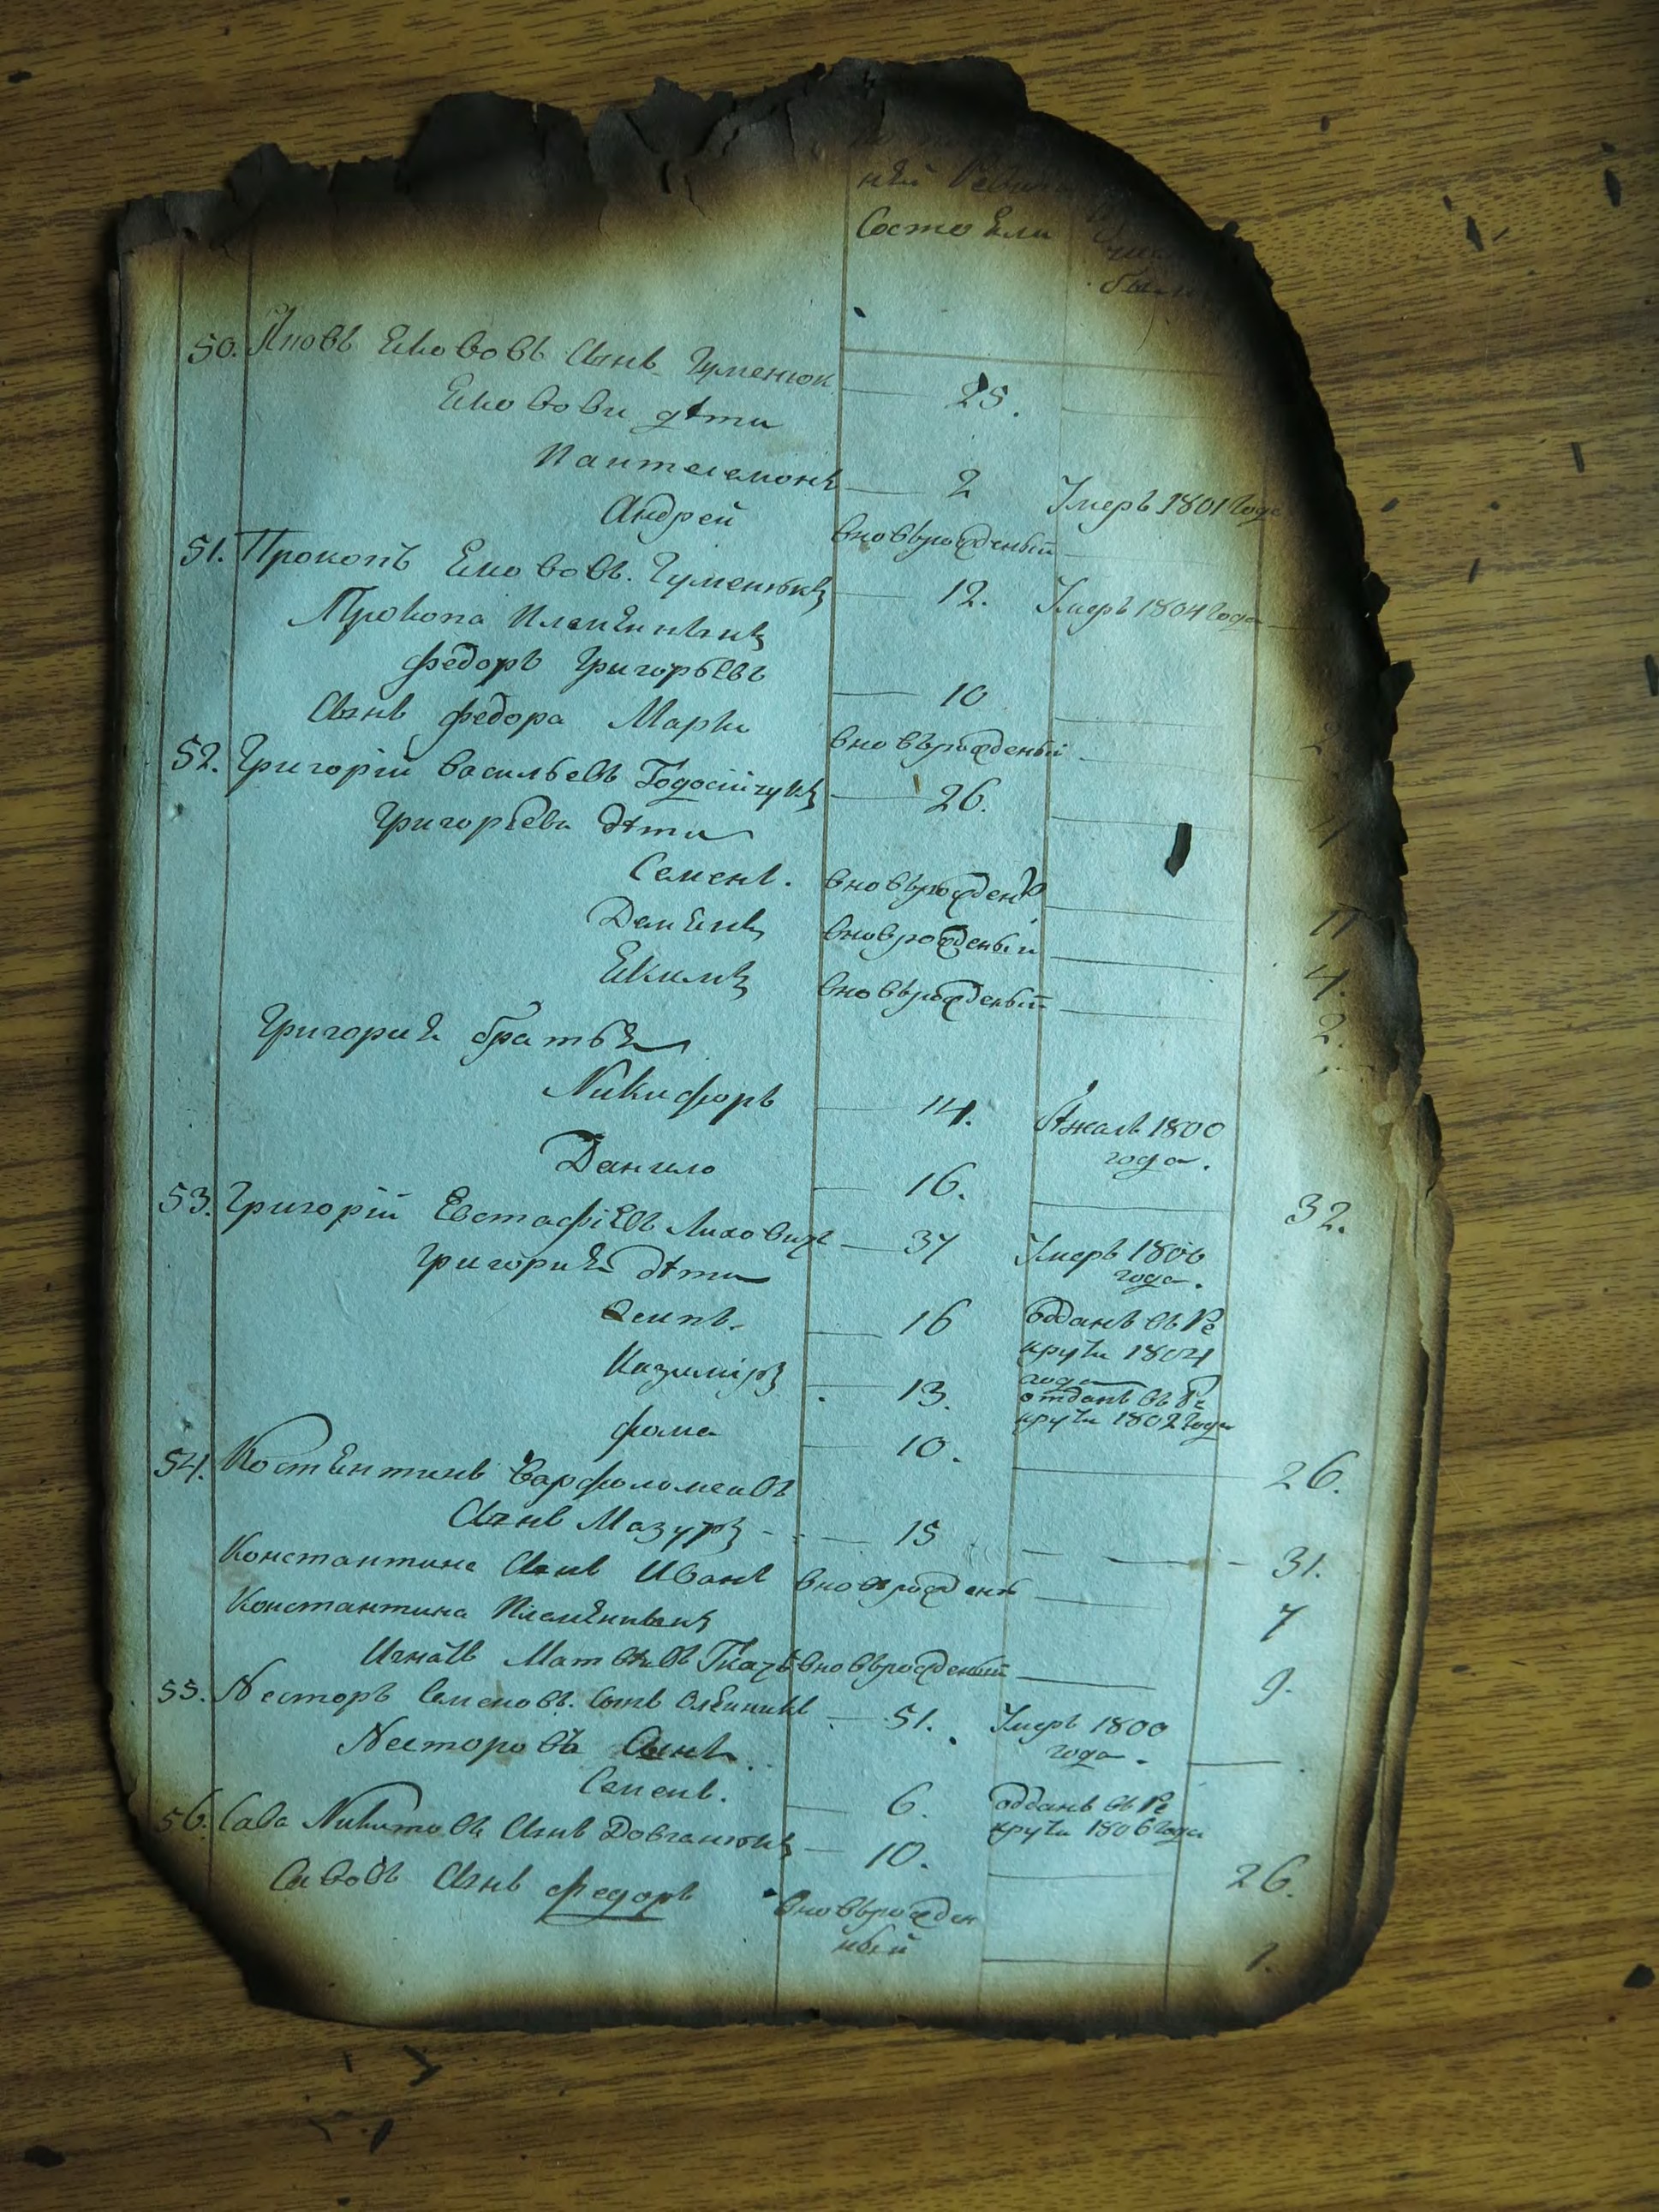 ней Ревизи
Состояли
бы
50. Яковъ Якововъ Сынъ Гуменюк 25.
Якововы дѣти
Пантелемонъ 2 Умеръ 1801 года
Андрей вновьрожденый
51. Прокопъ Якововъ Гуменюкъ 12. Умеръ 1804 года
Прокопа Племянникъ
Федоръ Григорьевъ 10
Сынъ Федора Марко вновьрожденый
52. Григорій Васильевъ Годосійчукъ 26.
Григорьевы дѣти
Семенъ. вновьрожден 11
Демянъ вноврожденый 4.
Якимъ вновьрожденый 2.
Григория братья
Никифоръ 14. 1800
года.
Данило 16. 32.
53. Григорій Евстафіевъ Лихович 37 Умеръ 1800
года.
Григория дѣти
Осипъ. 16 Отданъ въ Ре
круты 1804
года
Казиміръ 13. отданъ въ Ре
круты 1802 года
Фома 10. 26.
54. Костянтинъ Варфоломеивъ
Сынъ Мазуръ 15 31.
Константина Сынъ Иванъ вноврожден 7
Константина Племянникъ
Игнатъ Матвѣевъ Ткачъ вновьрожденый 9.
55. Несторъ Семеновъ. Сынъ Олейникъ 51. Умеръ 1800
года.
Несторовъ Сынъ
Семенъ. 6. Отданъ въ Ре
круты 1806 года
56. Сава Никитовъ Сынъ Довганюкъ 10. 26.
Савовъ Сынъ Федоръ вновьрожден
ный 1.